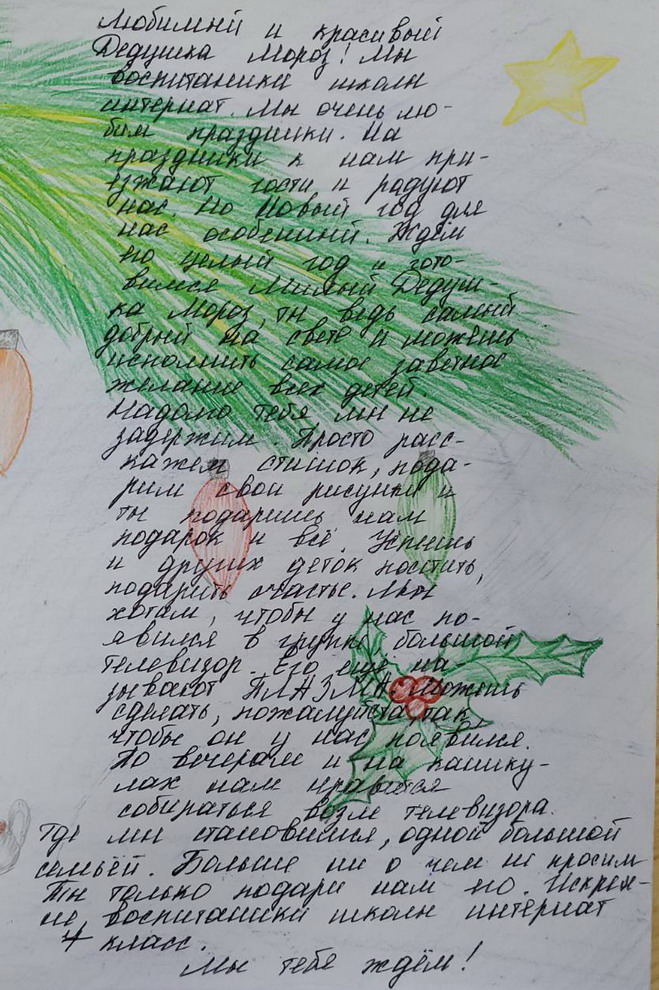 Любимый и красивый
Дедушка Мороз! Мы
воспитаники школы
интернат. Мы очень лю-
бим праздники. На
праздники к нам при-
езжают гости и радуют
нас. Но Новый год для
нас особенный. Ждём
его целый год и гото-
вимся Милый Дедуш-
ка Мороз, ты ведь самый
добрый на свете и можешь
исполнить самое заветное
желание всех детей.
Надолго тебя мы не
задержим. Просто расс-
кажем стишок, пода-
рим свои рисунки и
ты подаришь нам
подарок и всё. Успеешь
и других деток постить,
подарить счастье. Мы
хотим, чтобы у нас по-
явился в групе большой
телевизор. Его ещё на-
зывают ПЛАЗМА. Можешь
сделать, пожалуйста, так
чтобы он у нас появился.
По вечерам и на канику-
лах нам нравится
собираться возле телевизора.
Где мы становимся, одной большой
семьёй. Больше ни о чем не просим
Ты только подари нам его. Искрен-
не, воспитаники школы интернат
4 класс.
Мы тебя ждём!